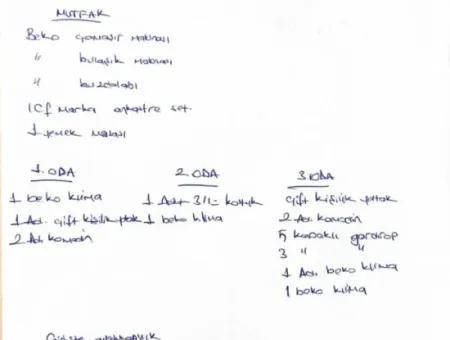 MUTFAK
Beko çamaşır makinası
" bulaşık makinası
" buzdolabı
ICf marka ankastre set.
1 yemek masası
1. ODA
1 beko klima
1 Ad. çift kişilik yatak
2 Ad. komodin
2. ODA
1 Adet 3/1 koltuk
1 beko klima
3. ODA
çift kişilik yatak
2 Ad. komodin
5 kapaklı gardırop
3 " "
1 Ad. beko klima
1 beko klima